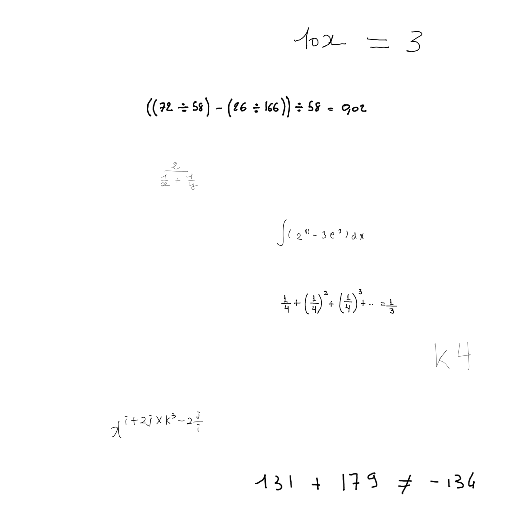 10x = 3
((72 ÷ 58) - (26 ÷ 166)) ÷ 58 = 0,02
∫(2ˣ - 3eˣ)dx
1/4 + (1/4)² + (1/4)³ + ... = 1/3
k4
x^(i+2j×k³-2j/i)
131 + 179 ≠ -134